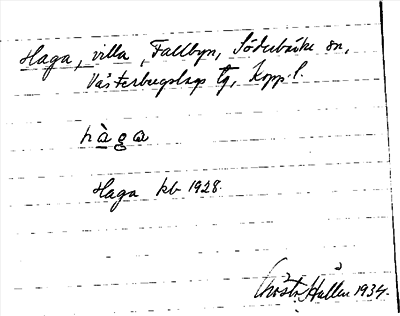 Haga, villa, Fallbyn, Söderbärke sn,
Västerbergslags tg, Kopp.l.
hàga
Haga kb 1928.
Gösta Hallén 1934.